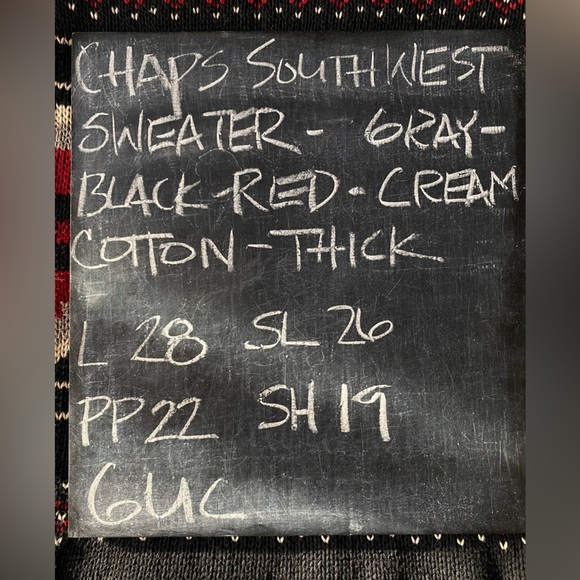 CHAPS SOUTHWEST
SWEATER - GRAY-
BLACK-RED-CREAM
COTTON-THICK
L 28 SL 26
PP 22 SH 19
GUC